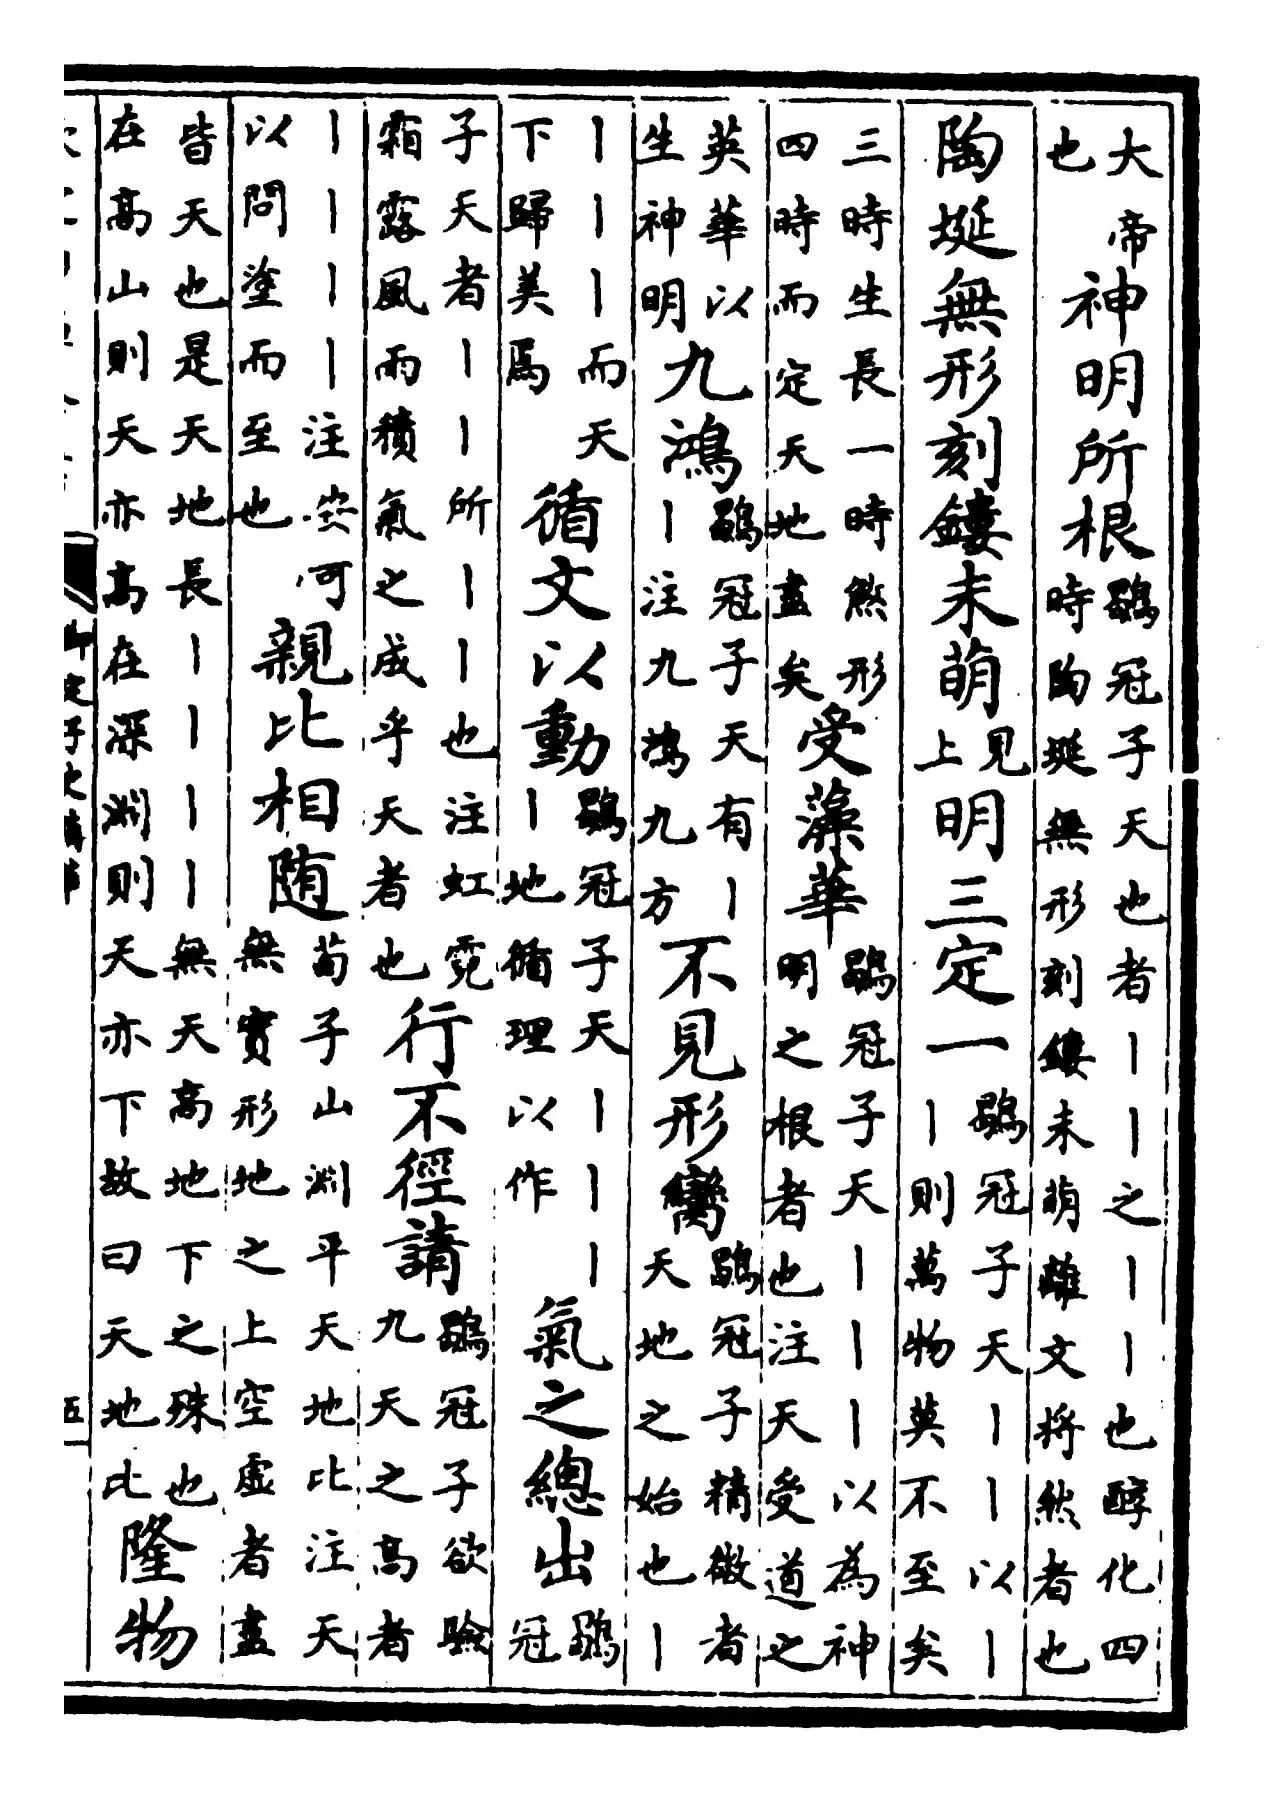 大帝也神明所根鶡冠子天也者丨丨之丨丨也醇化四時陶埏無形刻鏤未萌離文將然者也
陶埏無形刻鏤未萌見上明三定一鶡冠子天丨丨以丨丨則萬物莫不至矣
三時生長一時煞形四時而定天地盡矣受藻華鶡冠子天丨丨丨以為神明之根者也注天受道之
英華以生神明九鴻鶡冠子天有丨丨注九鴻九方不見形臠鶡冠子精微者天地之始也丨
丨丨丨而天下歸美焉循文以動鶡冠子天丨丨丨丨地循理以作氣之總出鶡冠
子天者丨丨所丨丨也注虹霓霜露風雨積氣之成乎天者也行不徑請鶡冠子欲驗九天之高者
丨丨丨丨注安可以問塗而至也親比相随荀子山淵平天地比注天無實形地之上空虛者盡
皆天也是天地長丨丨丨丨無天高地下之殊也在高山則天亦高在深淵則天亦下故曰天地比隆物
御定子史精華
五